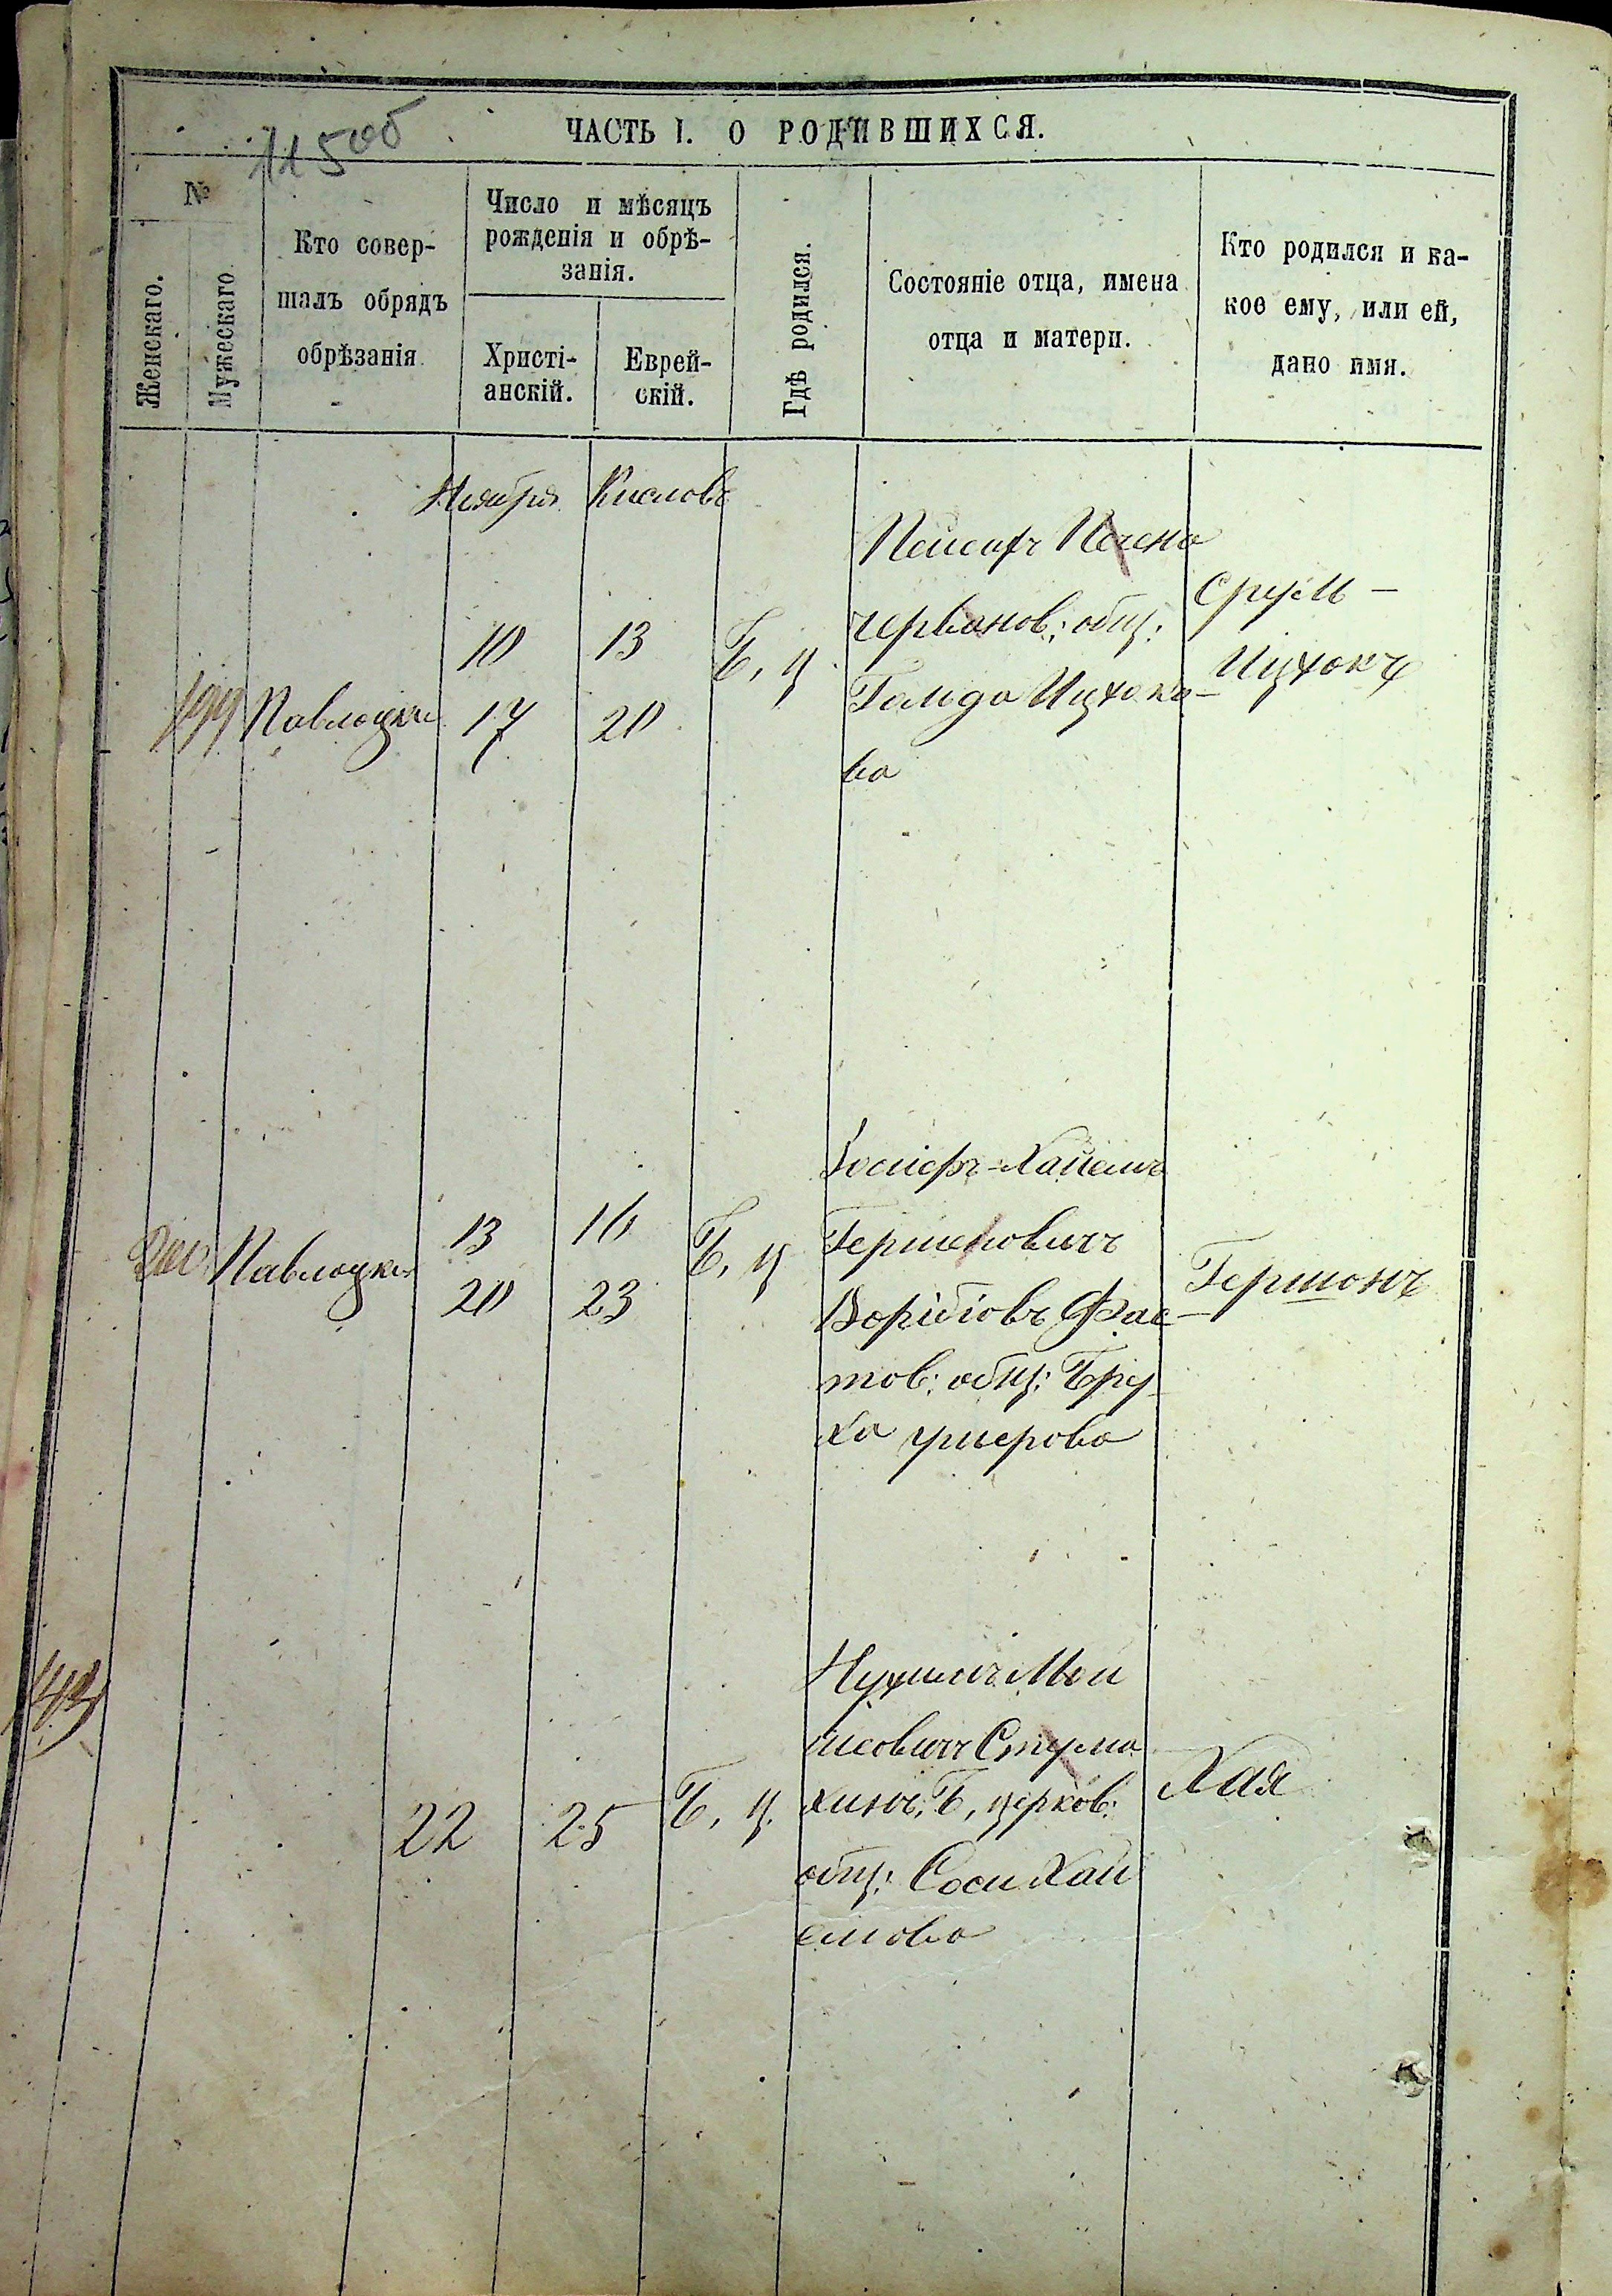 115 об
ЧАСТЬ I. О РОДИВШИХСЯ.
№
Женскаго.
Мужескаго
Кто совер-
шалъ обрядъ
обрѣзанія
Число и мѣсяцъ
рожденія и обрѣ-
занія.
Христі-
анскій.
Еврей-
скій.
Гдѣ родился.
Состояніе отца, имена
отца и матери.
Кто родился и ка-
кое ему, или ей,
дано имя.
Ноября Кислевъ
199 Павлоцкій
10 13
17 20
Б, ц.
червонов: общ:
Голда Ицхоко-
ва
Срул-
Ицхокъ
200 Павлоцкій
13 16
20 23
Б, ц
Іосифъ-Хаимъ
Гершковичъ
Ворібіовъ Фас-
тов: общ: Бру-
ха Ушерова
Гершонъ
22 25
Б, ц.
Нухимъ Мой
шовичъ Стума
хинъ, Б, церков:
общ: Соси Хаи
мова
Хая